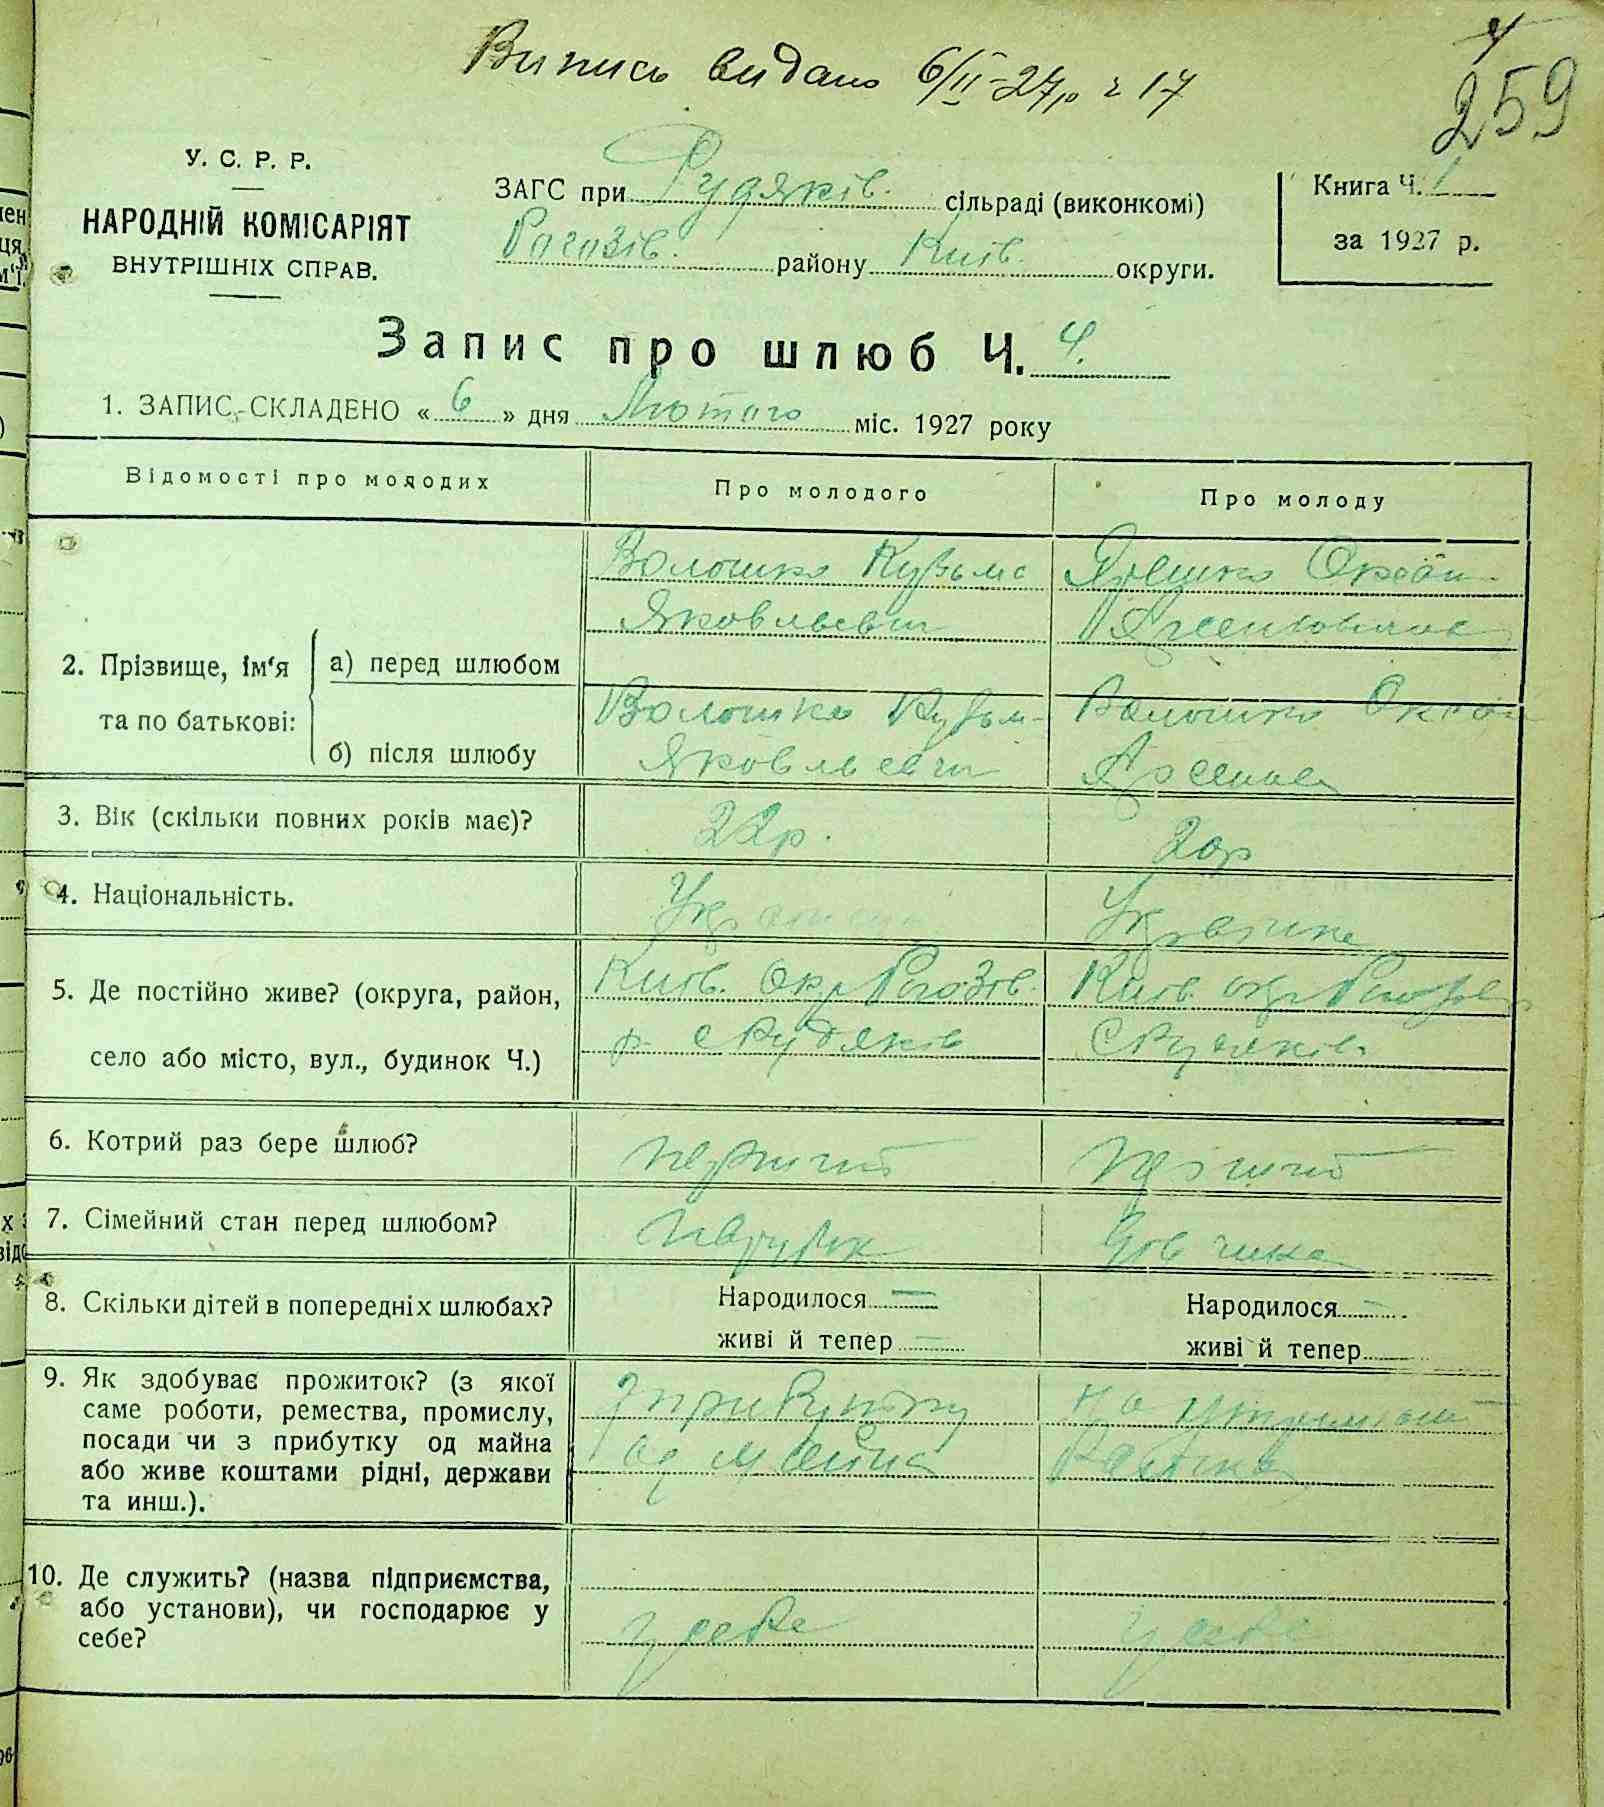 Випись видано 6/II-27р ч 17
259
У. С. Р. Р.
НАРОДНІЙ КОМІСАРІЯТ
ВНУТРІШНІХ СПРАВ.
ЗАГС при Рудяків. сільраді (виконкомі)
Рогозів. району Київ. округи.
Книга Ч. 1
за 1927 р.
Запис про шлюб Ч. 4.
1. ЗАПИС СКЛАДЕНО « 6 » дня Лютого міс. 1927 року
Відомості про молодих
Про молодого
Про молоду
2. Прізвище, ім'я
та по батькові:
а) перед шлюбом
б) після шлюбу
Волошко Кузьма
Яковльевич
Оксан
Волошко Кузьм
Яковльевич
Волошко Оксан
Арсеньев
3. Вік (скільки повних років має)?
22р.
20р
4. Національність.
Українець
Українка
5. Де постійно живе? (округа, район,
село або місто, вул., будинок Ч.)
Київ. окр Рогозів.
р. с Рудяків
Київ. окр Рогозів
с Рудяків
6. Котрий раз бере шлюб?
первший
первший
7. Сімейний стан перед шлюбом?
парубок
дівчина
8. Скільки дітей в попередніх шлюбах?
Народилося —
живі й тепер —
Народилося —
живі й тепер
9. Як здобуває прожиток? (з якої
саме роботи, ремества, промислу,
посади чи з прибутку од майна
або живе коштами рідні, держави
та инш.).
з прибутку
од майна
на утриман
батька
10. Де служить? (назва підприємства,
або установи), чи господарює у
себе?
у себе
у себе